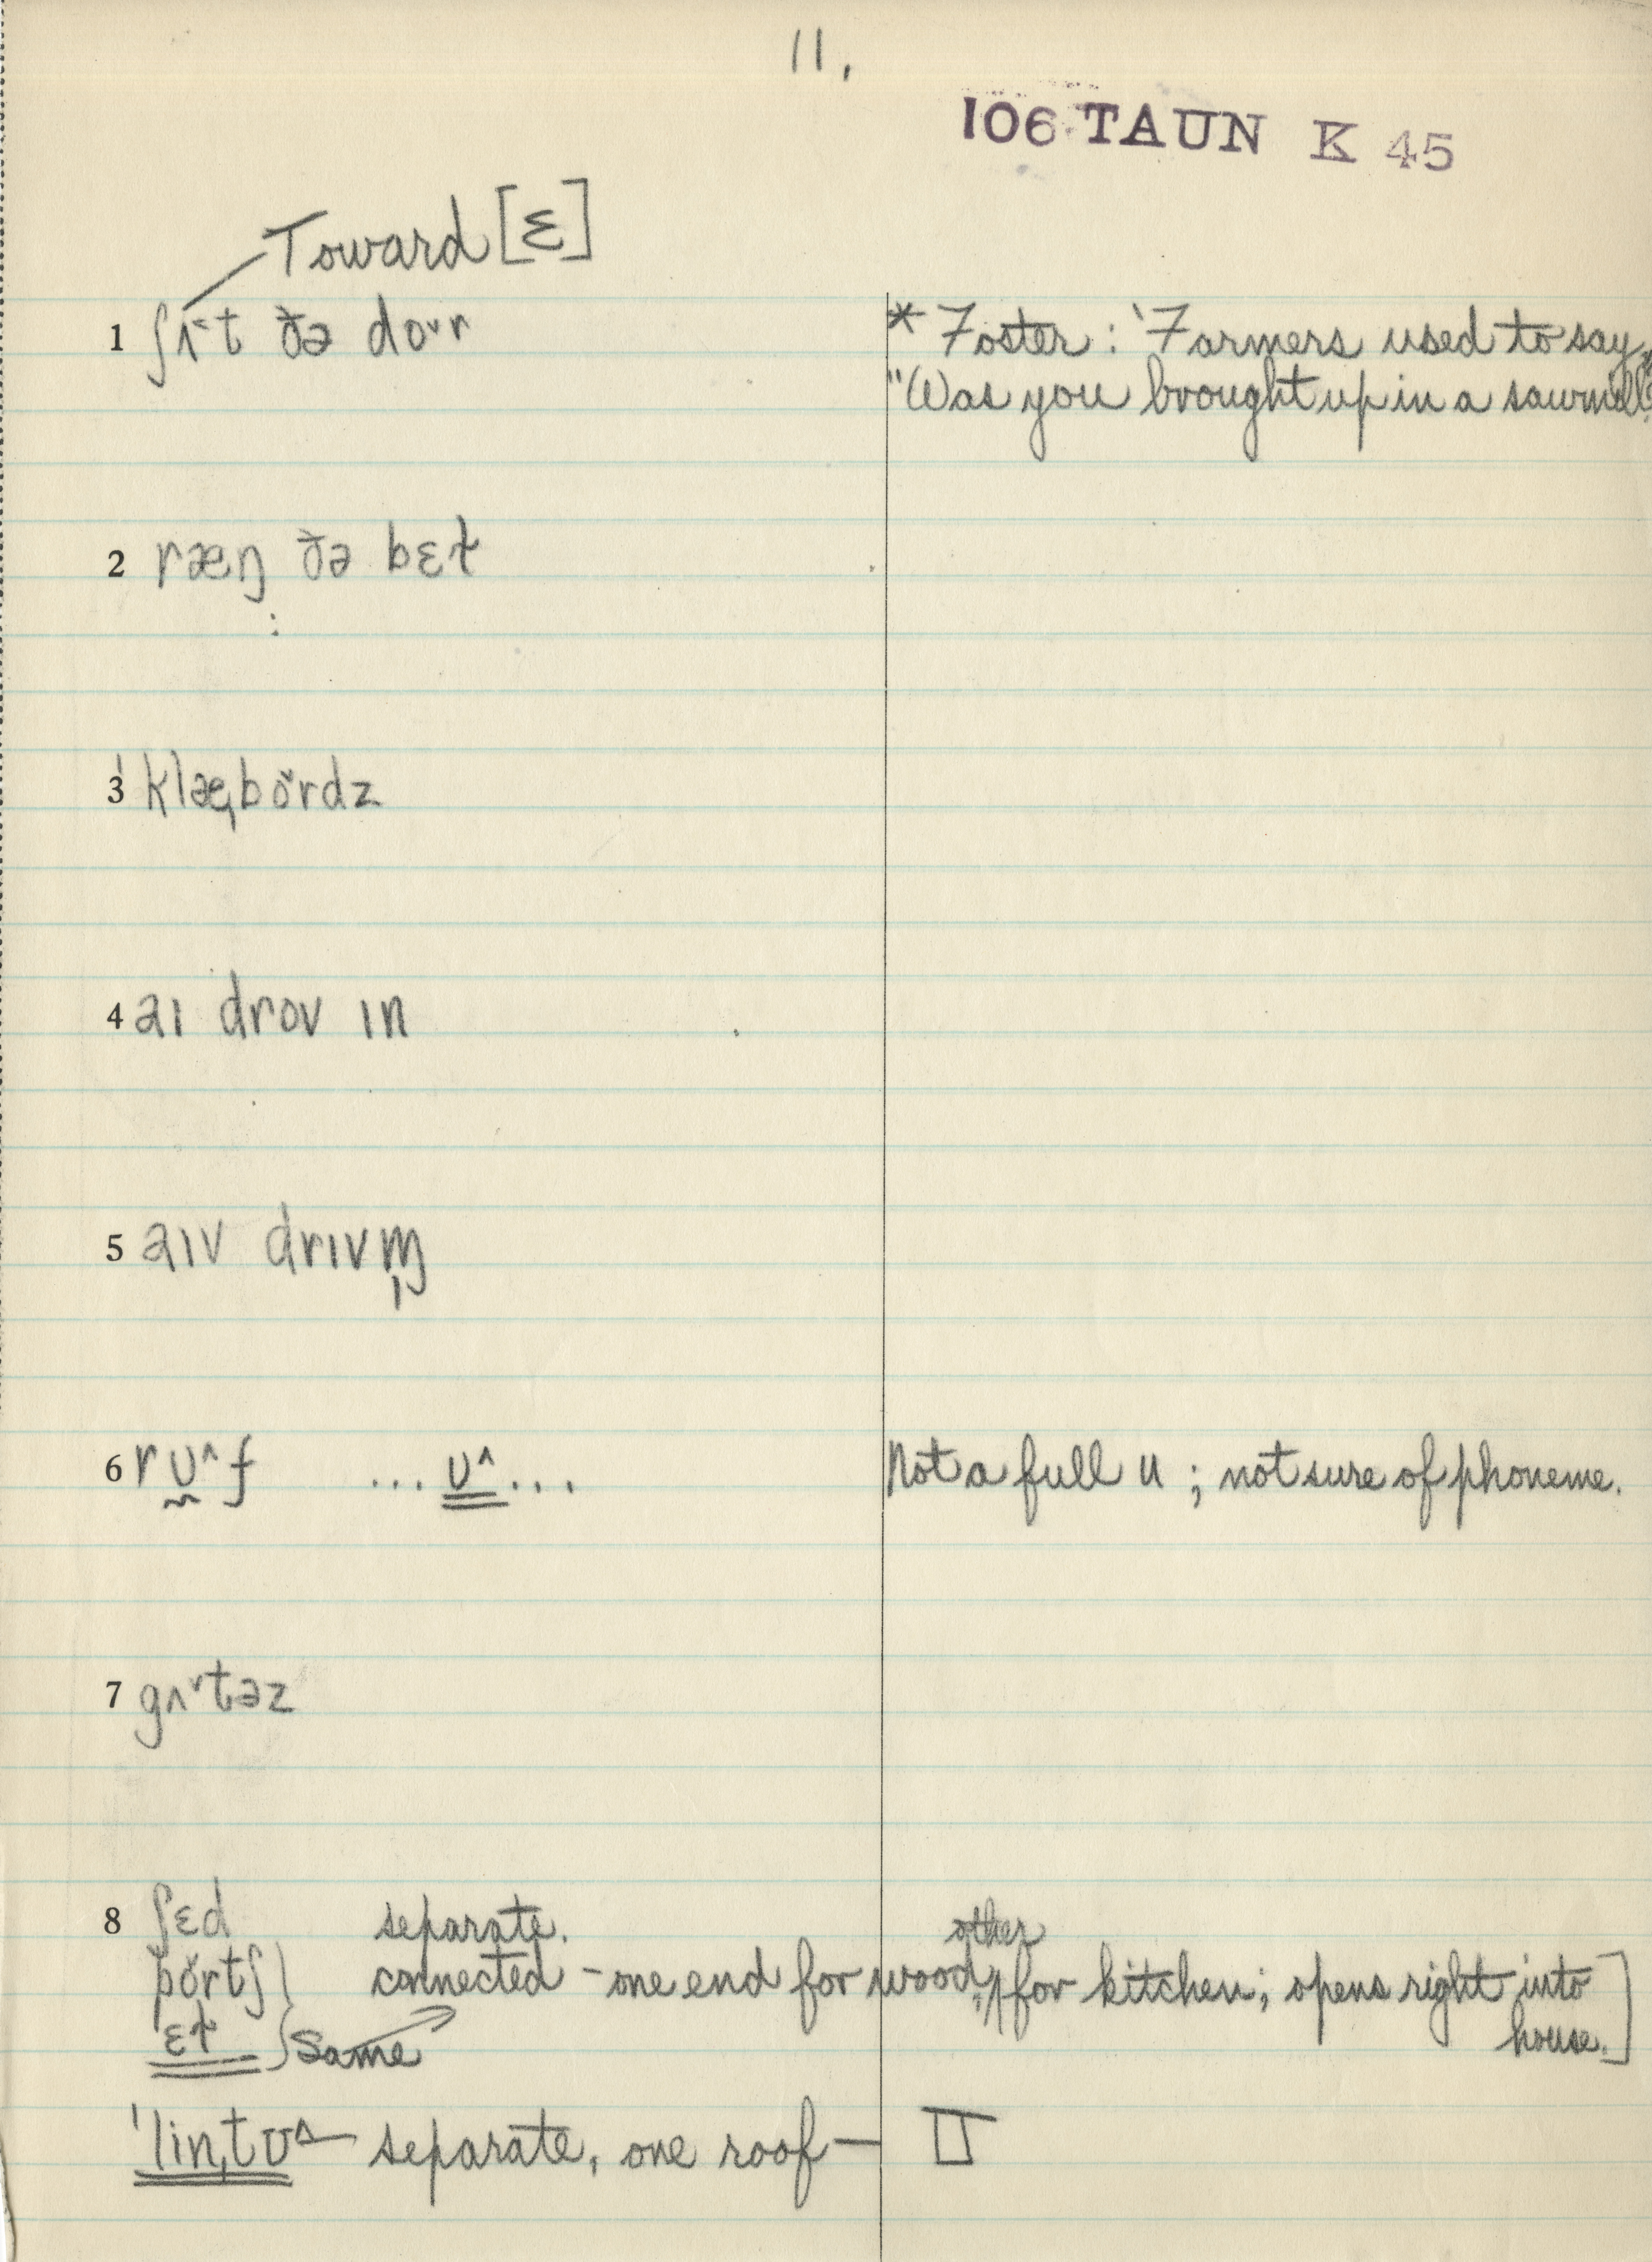 11.
106 TAUN K 45
Toward [ɛ]
1 ʃɪ˂t ðə do˅r
* Foster: 'Farmers used to say,
"Was you brought up in a sawmill?
2 ræŋ ðə bɛɫ
3 ˈklæˌbo˅rdz
4 aɪ drov ɪn
5 aɪv drɪvm̩
6 rʊ^f ... ʊ^ ... Not a full u ; not sure of phoneme.
7 gʌ˅t̬əz
8 ʃɛd separate.
po˅rtʃ } connected - one end for wood, other for kitchen; opens right into
ɛɫ } Same house.]
ˈlinˌtʊ^ — separate, one roof —